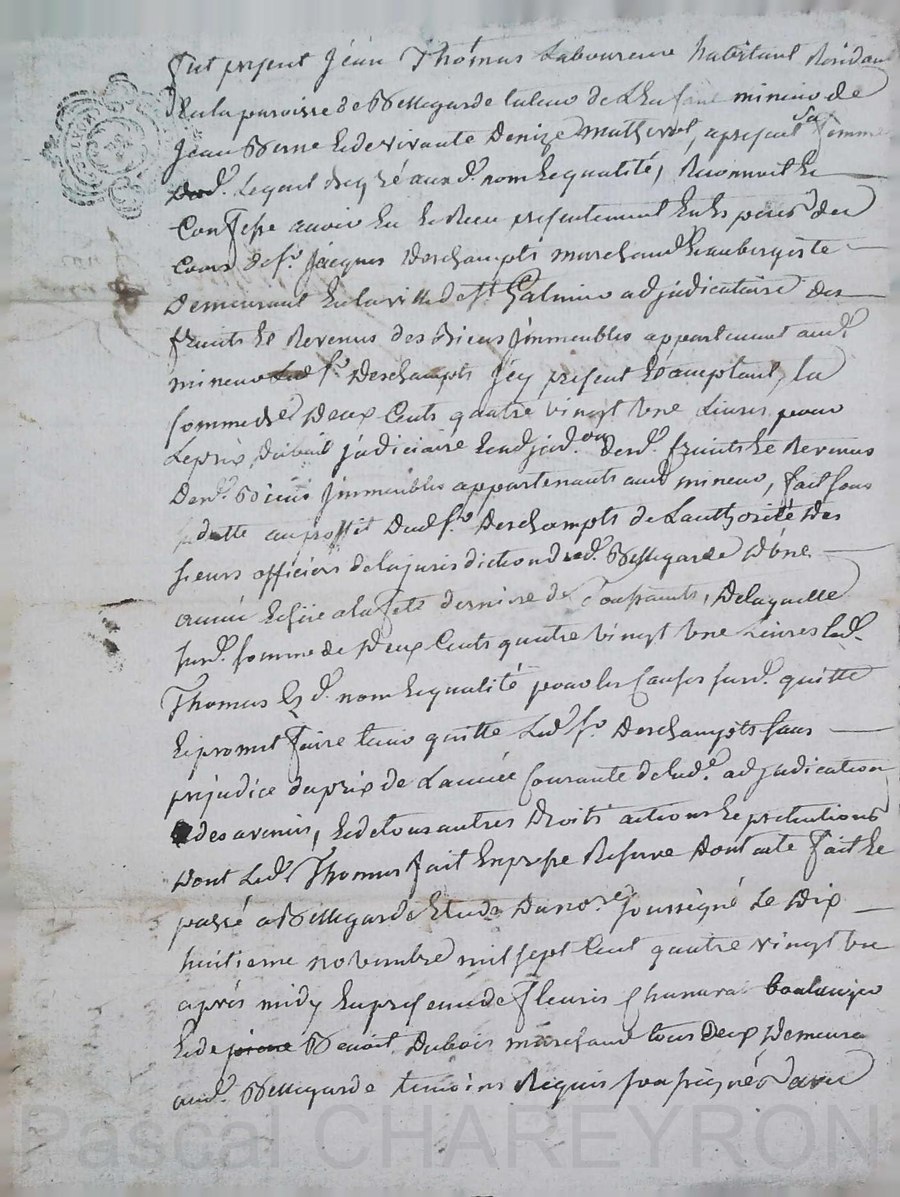 Fut present Jean Thomas Laboureur habitant Residant
En la paroisse de Bellegarde tuteur de L'Enfant mineur de
Jean Berne Et de vivante Denize Mathevot, a present sa femme
Lequel de gré aud.t nom Et qualité, Reconnoit Et
Confesse avoir Eu Et Receu presentement En Especes du
Cours de S.r Jacques Deschampts marchand Et aubergiste
Demeurant En la ville de S.t Galmier adjudicataire des
fruits Et Revenus des Biens Immeubles appartenant aud.t
mineur Led S.r Deschampts Icy present Et acceptant, la
somme de Deux Cents quatre vingt Une Livres pour
Le prix du bail judiciaire Et adjud.on Desd. fruits Et Revenus
Desd. Biens Immeubles appartenants aud mineur, fait sous
sa datte au proffit Dud S.r Deschampts de L'authorité Des
sieurs officiers de la jurisdiction dud. Bellegarde D'une
année Echue a la fete derniere de Toussaints, De laquelle
susd. somme de Deux Cents quatre vingt Une Livres led.
Thomas Esd. nom Et qualité pour les Causes susd. quitte
Et promet faire tenir quitte Led S.r Deschampts sans
prejudice du prix de L'année Courante de lad. adjudication
Et des avenir, Et de tous autres Droits actions Et pretentions
Dont Led. Thomas fait Expresse Reserve Dont acte fait Et
passé a Bellegarde Etude Du no.re soussigné Le Dix
huitieme novembre mil sept Cent quatre vingt Un
après midy En presence de Fleuris boulanger
Et de Benoit Dubois marchand tous deux Demeurant
aud. Bellegarde temoins Requis soussignés avec
Pascal CHAREYRON